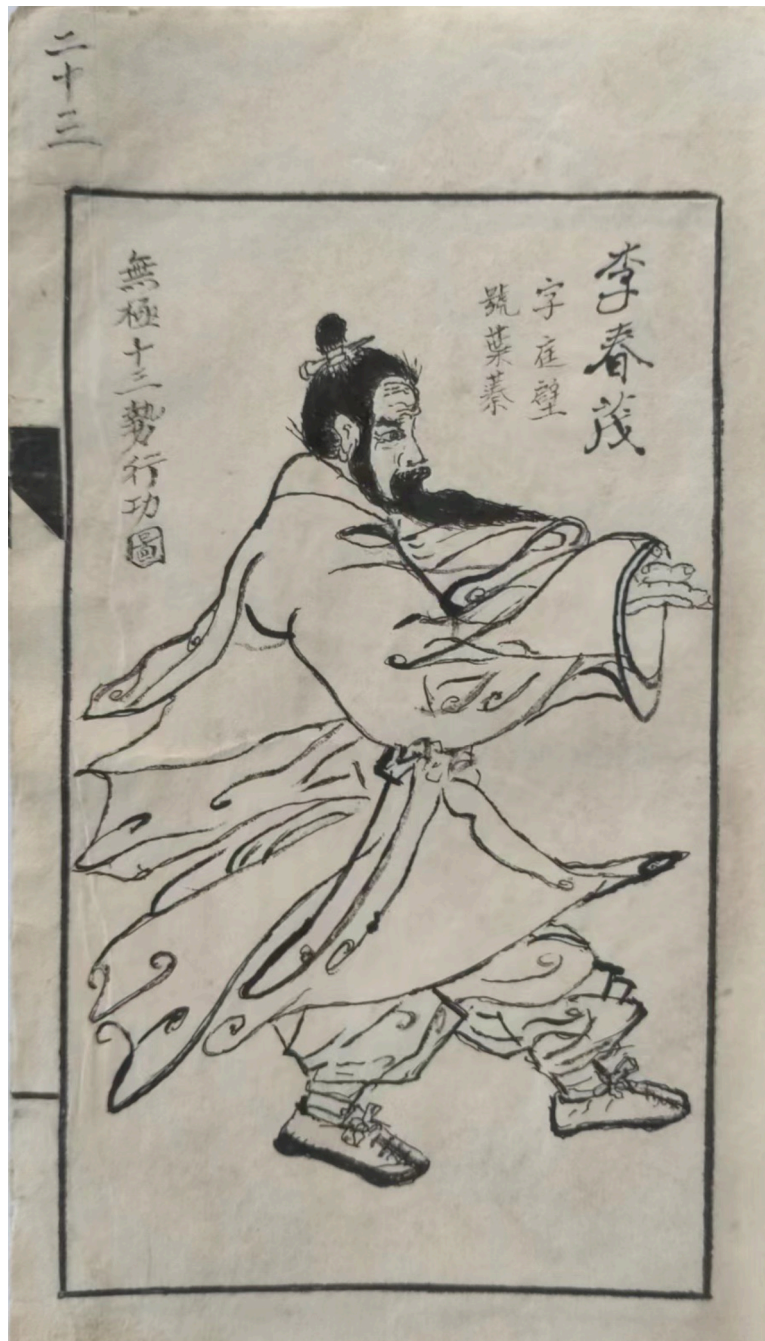 二十三
李春茂
字庭壁
號葉蓁
無極十三勢行功圖